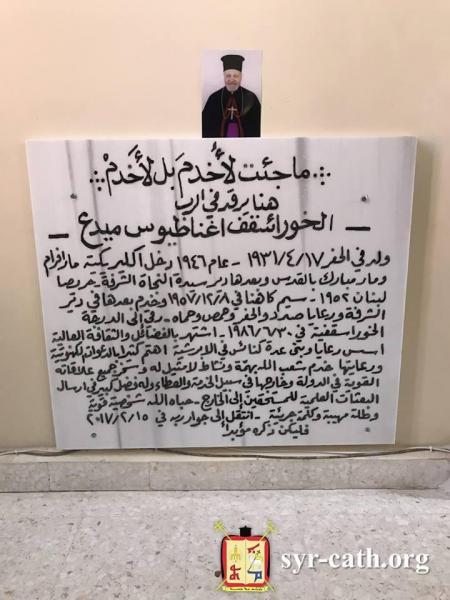 ما جئت لأُخدم بل لأَخدمْ
هنا يرقد في الرب
الخوراسقف اغناطيوس ميدع
ولد في الحفر ١٩٣١/٤/١٧ - عام ١٩٤٦ دخل اكليريكية مار افرام
ومار مبارك بالقدس وبعدها دير سيدة النجاة الشرفة - حريصا
لبنان ١٩٥٢ - سيم كاهنا في ١٩٥٧/١٢/٨ وخدم بعدها في دير
الشرفة ورعايا صدد والحفر وحمص وحماه - رقي إلى الدرجة
الخوراسقفية في ١٩٨٦/٦/٣٠ - اشتهر بالفضائل والثقافة العالية
اسس رعايا وبنى عدة كنائس في الابرشية اهتم كثيرا بالدعوات الكهنوتية
ورعايتها خدم شعب الله بهمة ونشاط لا مثيل له وسخر جميع علاقاته
القوية في الدولة وخارجها في سبيل الخدمة والعطاء وله فضل كبير في ارسال
البعثات العلمية للمتفوقين إلى الخارج - حباه الله شخصية قوية
وطلة مهيبة وكلمة جريئة - انتقل إلى جوار ربه في ٢٠١٧/٢/١٥
فليكن ذكره مؤبدا
syr-cath.org